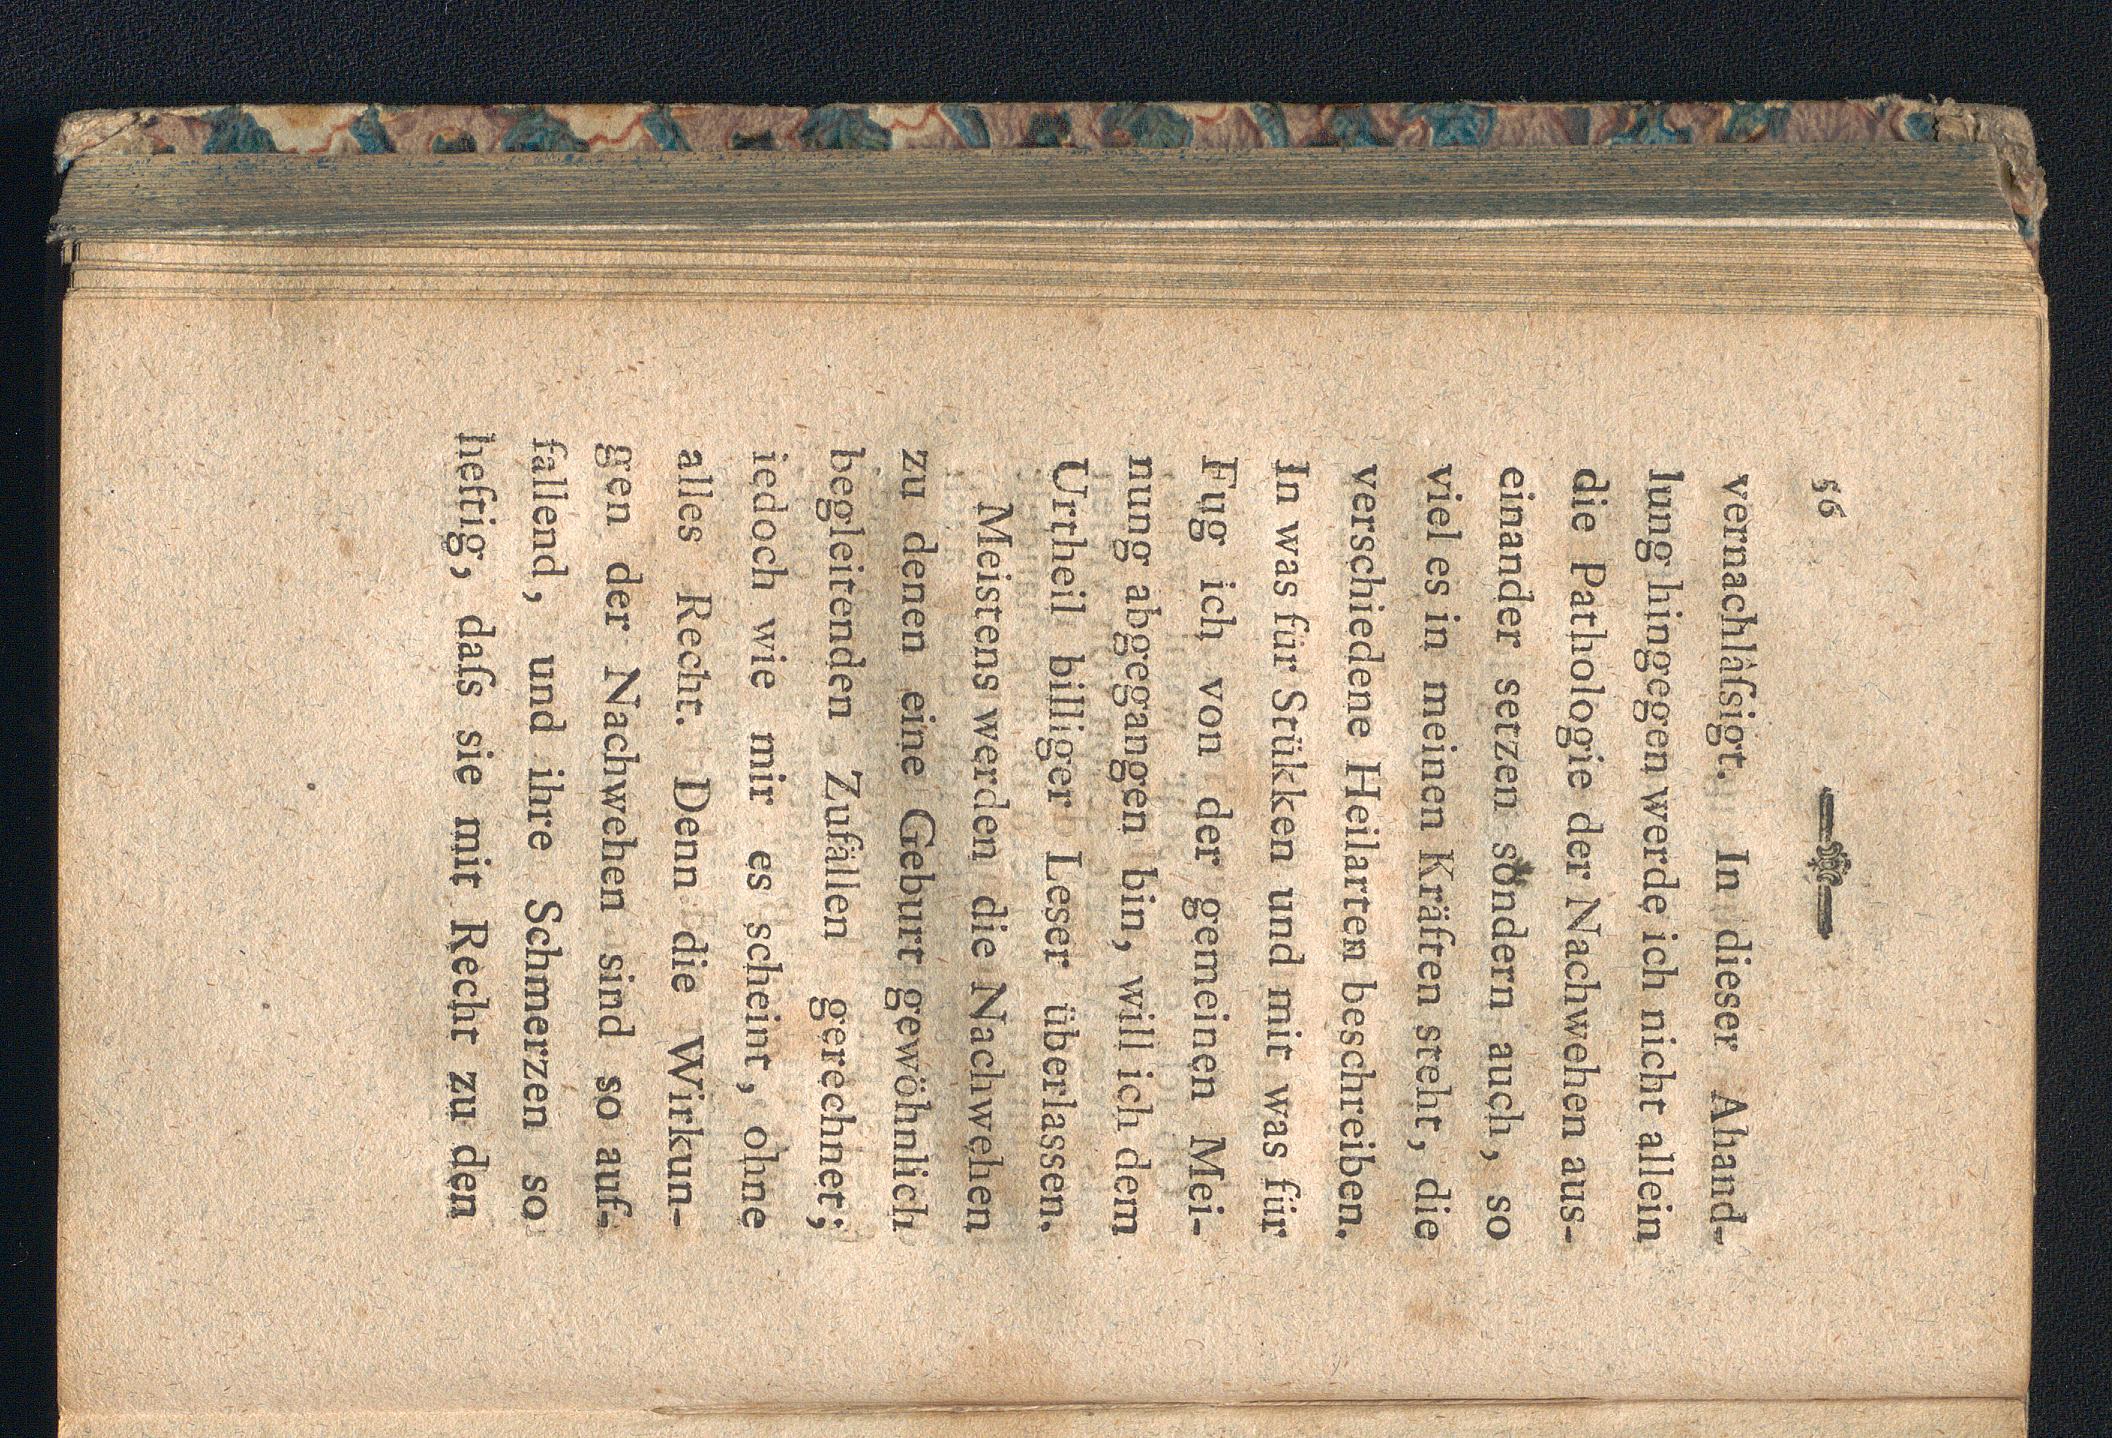 56
vernachläſsigt. In dieser Ahand-
lung hingegen werde ich nicht allein
die Pathologie der Nachwehen aus-
einander setzen sondern auch, so
viel es in meinen Kräften steht, die
verschiedene Heilarten beschreiben.
In was für Stükken und mit was für
Fug ich von der gemeinen Mei-
nung abgegangen bin, will ich dem
Urtheil billiger Leser überlassen.
Meistens werden die Nachwehen
zu denen eine Geburt gewöhnlich
begleitenden Zufällen gerechnet;
iedoch wie mir es scheint, ohne
alles Recht. Denn die Wirkun-
gen der Nachwehen sind so auf-
fallend, und ihre Schmerzen so
heftig, daſs sie mit Recht zu den